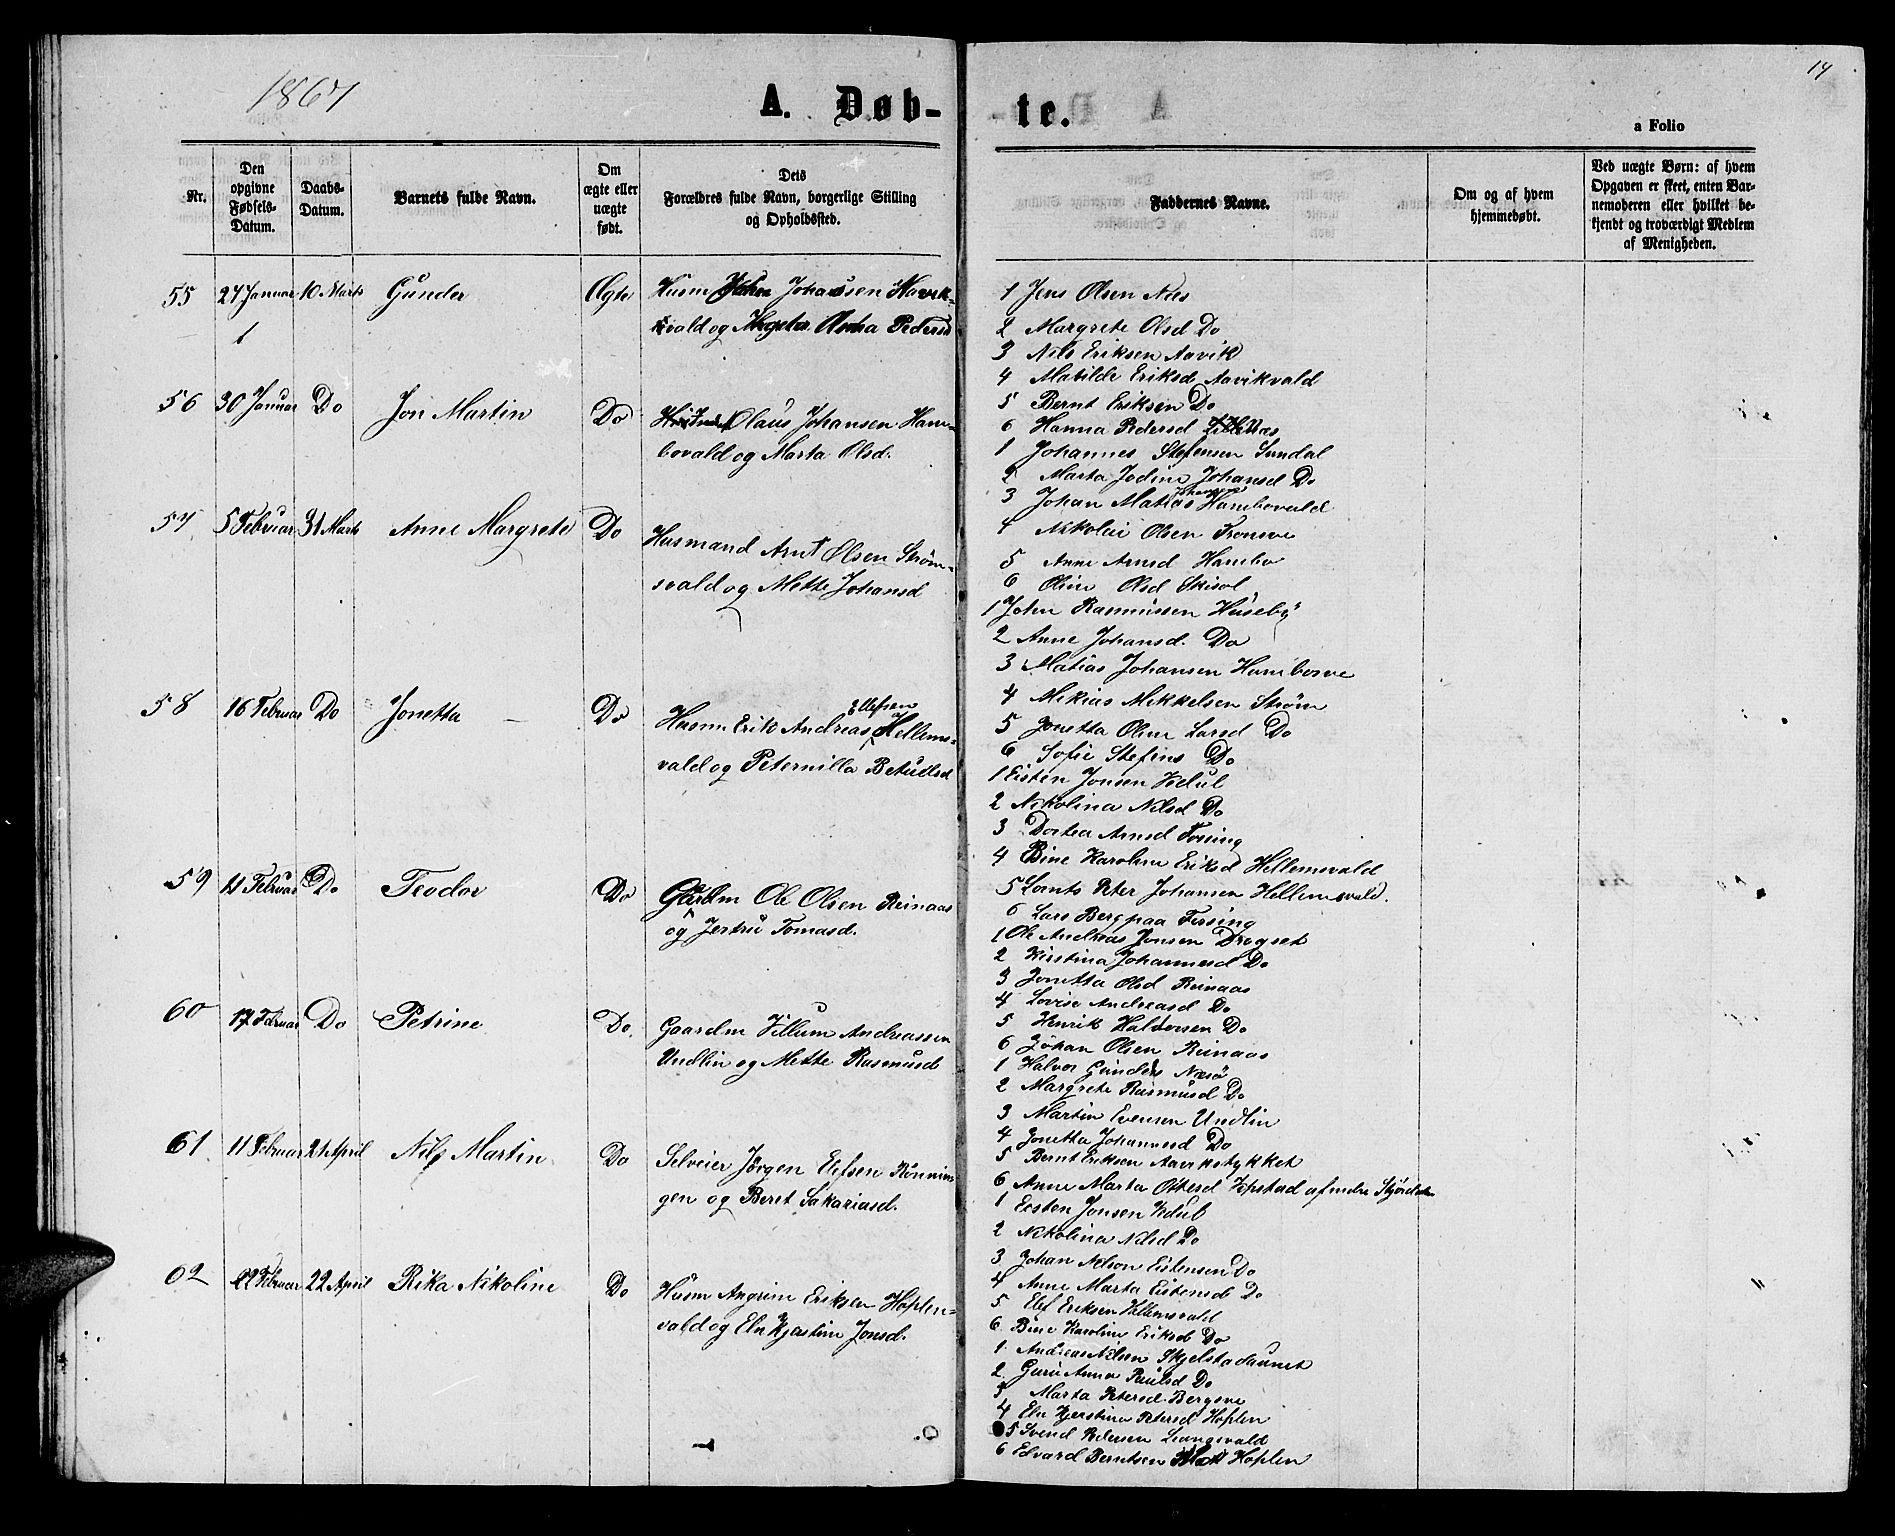 1867
A. Døb-
Nr.
Den opgivne Fødsels-Datum.
Daabs-Datum.
Barnets fulde Navn.
Om ægte eller uægte født.
Dets Forældres fulde Navn, borgerlige Stilling og Opholdssted.
55 27 Januar 10 Marts Gunder Ægte Husm Johansen Havik-
vald og Anna Pedersd
56 30 Januar Do Jon Martin Do Olaus Johansen Ham-
bovald og Marta Olsd.
57 5 Februar 31 Marts Anne Margrete Do Husmand Arnt Olsen Strøm-
svald og Mette Johansd
58 16 Februar Do Jonetta Do Husm Erik Andreas Ellefsen Hellems-
vald og Peternilla Betuelsd
59 11 Februar Do Teodor Do Gaardm Ole Olsen Reinaas
og Jertru Tomasd.
60 17 Februar Do Petrine Do. Gaardm Villum Andreassen
Undlin og Mette Rasmusd
61 11 Februar 21 April Nils Martin Do Selveier Jørgen Elefsen Rönnin-
gen og Beret Sakariasd.
62 22 Februar 22 April Rika Nikoline Do Husm Angrim Eriksen Hoplen-
vald og Eln Kjerstine Jonsd.
14
te.
a Folio
Faddernes Navne.
Om og af hvem hjemmedøbt.
Ved uægte Børn: af hvem Opgaven er skeet, enten Barnemoderen eller hvilket bekjendt og troværdigt Medlem af Menigheden.
1 Jens Olsen Nås
2 Margrete Olsd Do
3 Nils Eriksen Aavik
4 Matilde Eriksd Aavikvald
5 Bernt Eriksen Do
6 Hanna Pedersd
1 Johannes Stefensen Sundal
2 Marta Jodine Johansd Do
3 Johan Matias Johansen Hambovald
4 Nikolai Olsen Fronsve
5 Anne Arnsd Hambo
6 Oline Olsd Skisol
1 John Rasmussen Huseby
2 Anne Johansd. Do
3 Matias Johansen Hambosve
4 Mikias Mikkelsen Strøm
5 Jonetta Oline Larsd Do
6 Sofie Stefens Do
1 Eisten Jonsen Vedul
2 Nikolina Nilsd Do
3 Dortea Arnsd Forsing
4 Bine Karoline Eriksd Hellemsvald
5 Lornts Peter Johansen Hellemsvald.
6 Lars Berg paa Fersing
1 Ole Andreas Jonsen Drogset
2 Kirstina Johannesd Do
3 Jonetta Olsd Reinaas
4 Lovise Andreasd Do
5 Henrik Halvorsen Do
6 Johan Olsen Reinaas
1 Halvor Gunders Næsø
2 Margrete Rasmusd Do
3 Martin Evensen Undlin
4 Jonetta Johannesd Do
5 Bernt Eriksen Aavikstykket
6 Anne Marta Ottersd Vepstad af nedre Stjørdalen
1 Eisten Jonsen Vedul
2 Nikolina Nilsd Do
3 Johan Nilson Eistensen Do
4 Anne Marta Eistensd Do
5 Elef Eriksen Hellemsvald
6 Bine Karoline Eriksd Do
1 Andreas Nilsen Skjelstadaunet
2 Guru Anna Paulsd Do
3 Marta Petersd. Bergsve
4 Eln Kjerstina Petersd Hoplen
5 Svend Pedersen Leangsvald
6 Edvard Berntsen Hoplen